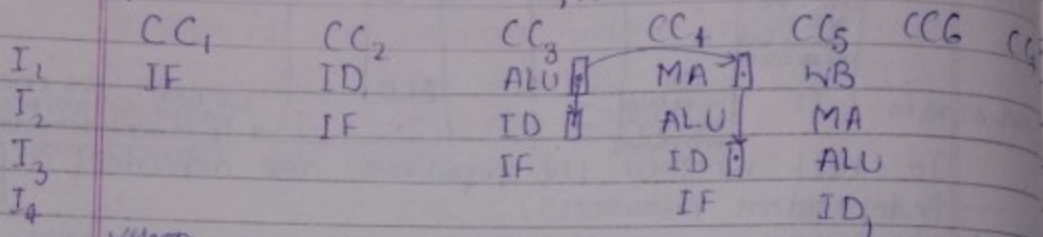 CC1 CC2 CC3 CC4 CC5 CC6
I1 IF ID ALU MA WB
I2 IF ID ALU MA
I3 IF ID ALU
I4 IF ID